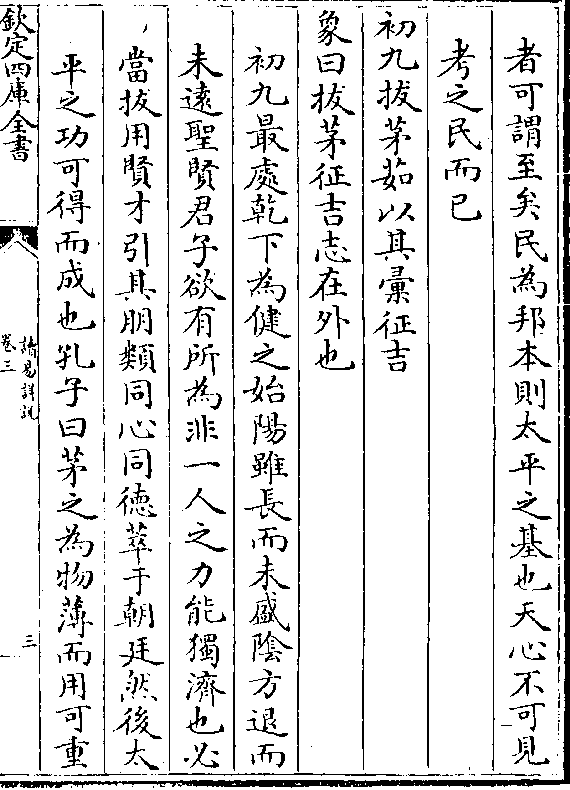 者可謂至矣民為邦本則太平之基也天心不可見
考之民而已
初九拔茅茹以其彙征吉
象曰拔茅征吉志在外也
初九最處乾下為健之始陽雖長而未盛陰方退而
未遠聖賢君子欲有所為非一人之力能獨濟也必
當拔用賢才引其朋類同心同德萃于朝廷然後太
平之功可得而成也孔子曰茅之為物薄而用可重
欽定四庫全書
讀易詳說
卷三
三